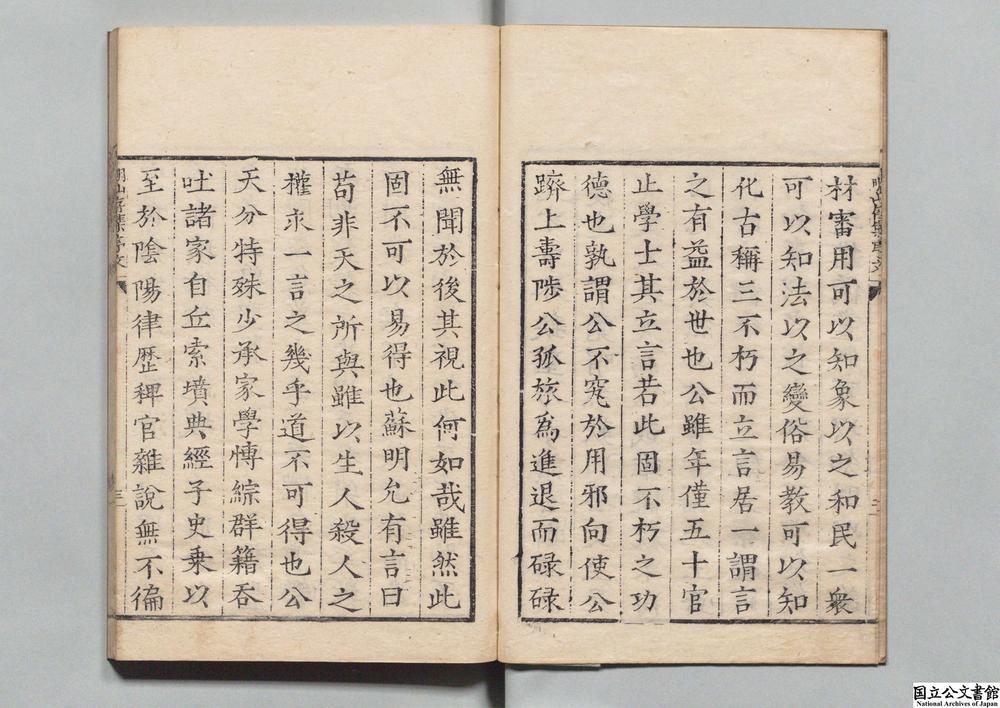 材審用可以知象以之和民一衆
可以知法以之變俗易教可以知
化古稱三不朽而立言居一謂言
之有益於世也公雖年僅五十官
止學士其立言若此固不朽之功
德也孰謂公不究於用邪向使公
躋上壽陟公孤旅為進退而碌碌
無聞於後其視此何如哉雖然此
固不可以易得也蘇明允有言曰
苟非天之所與雖以生人殺人之
權求一言之幾乎道不可得也公
天分特殊少承家學博綜群籍吞
吐諸家自丘索墳典經子史乗以
至於陰陽律歷稗官雜說無不徧
三
国立公文書館
National Archives of Japan